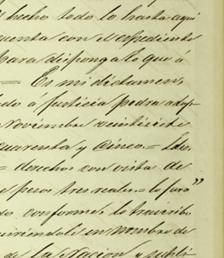 hecho todo lo hasta aquí
cuenta con el expediente
para disponga lo que á
= Es mi dictamen,
do a justicia podrá adop
Noviembre veintisiete
Cuarenta y Cinco = Ldo.
= derechos con vista de
pesos tres reales = lo juro"
do conforme, lo trascrib
en nombre de
de la Nacion, y supli